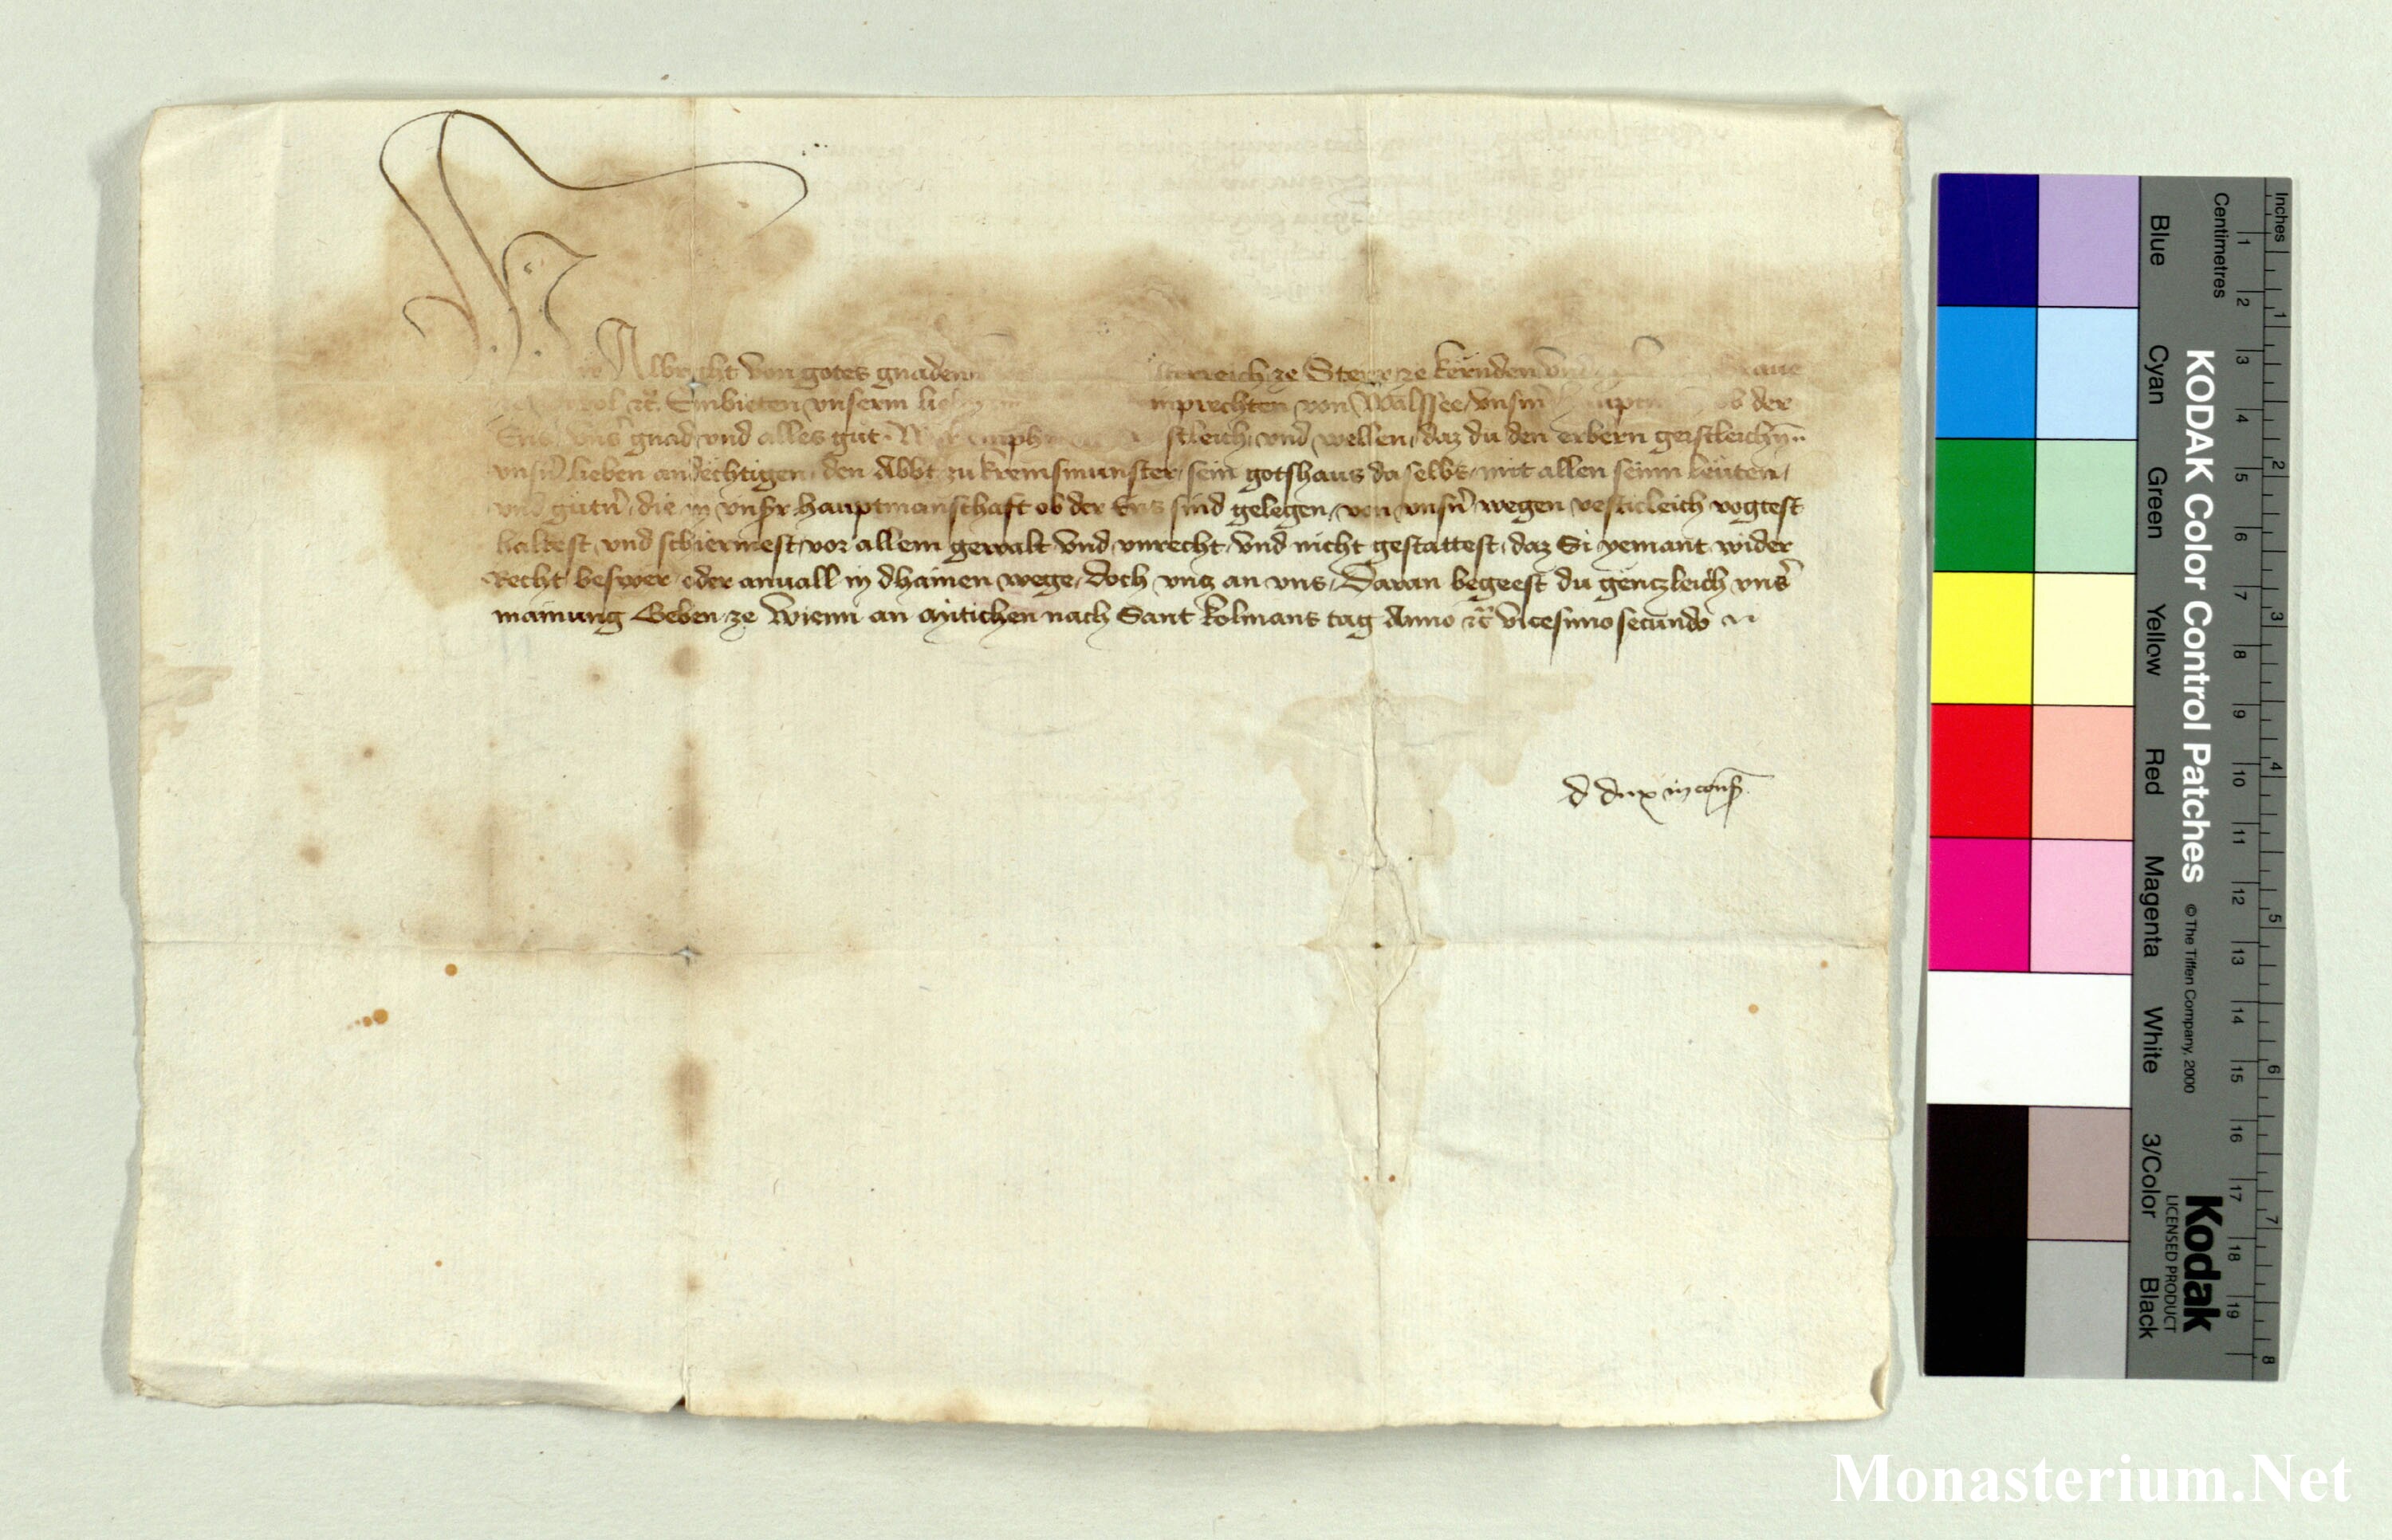 Albrecht von gotes gnaden ze Steyr ze kernden
Embieten vnserm von Walssee vnserm ob der
Ens vnser gnad vnd alles gut Wir stleich vnd wellen daz du den erbern geistleichen
vnsern lieben andechtigen den Abbt zu kremsmunster sein gotshaus daselbs mit allen seinn leuten
vnd gutern die in vnsrer hauptmanschaft ob der Ens sind gelegen von vnsern wegen vesticleich vogtest
haldest vnd schiermest vor allem gewalt vnd vnrecht vnd nicht gestattest daz Si yemant wider
Recht beswer oder anuall in dhainen wege doch vncz an vns Daran begeest du genczleich vnser
mainung Geben ze Wienn an Mitichen nach Sant kolmans tag Anno etc vicesimosecundo
d dux in cons
Inches
Centimetres
1 2 3 4 5 6 7 8 9 10 11 12 13 14 15 16 17 18 19
1 2 3 4 5 6 7 8
Blue Cyan Green Yellow Red Magenta White 3/Color Black
KODAK Color Control Patches
© The Tiffen Company, 2000
Kodak
LICENSED PRODUCT
Monasterium.Net